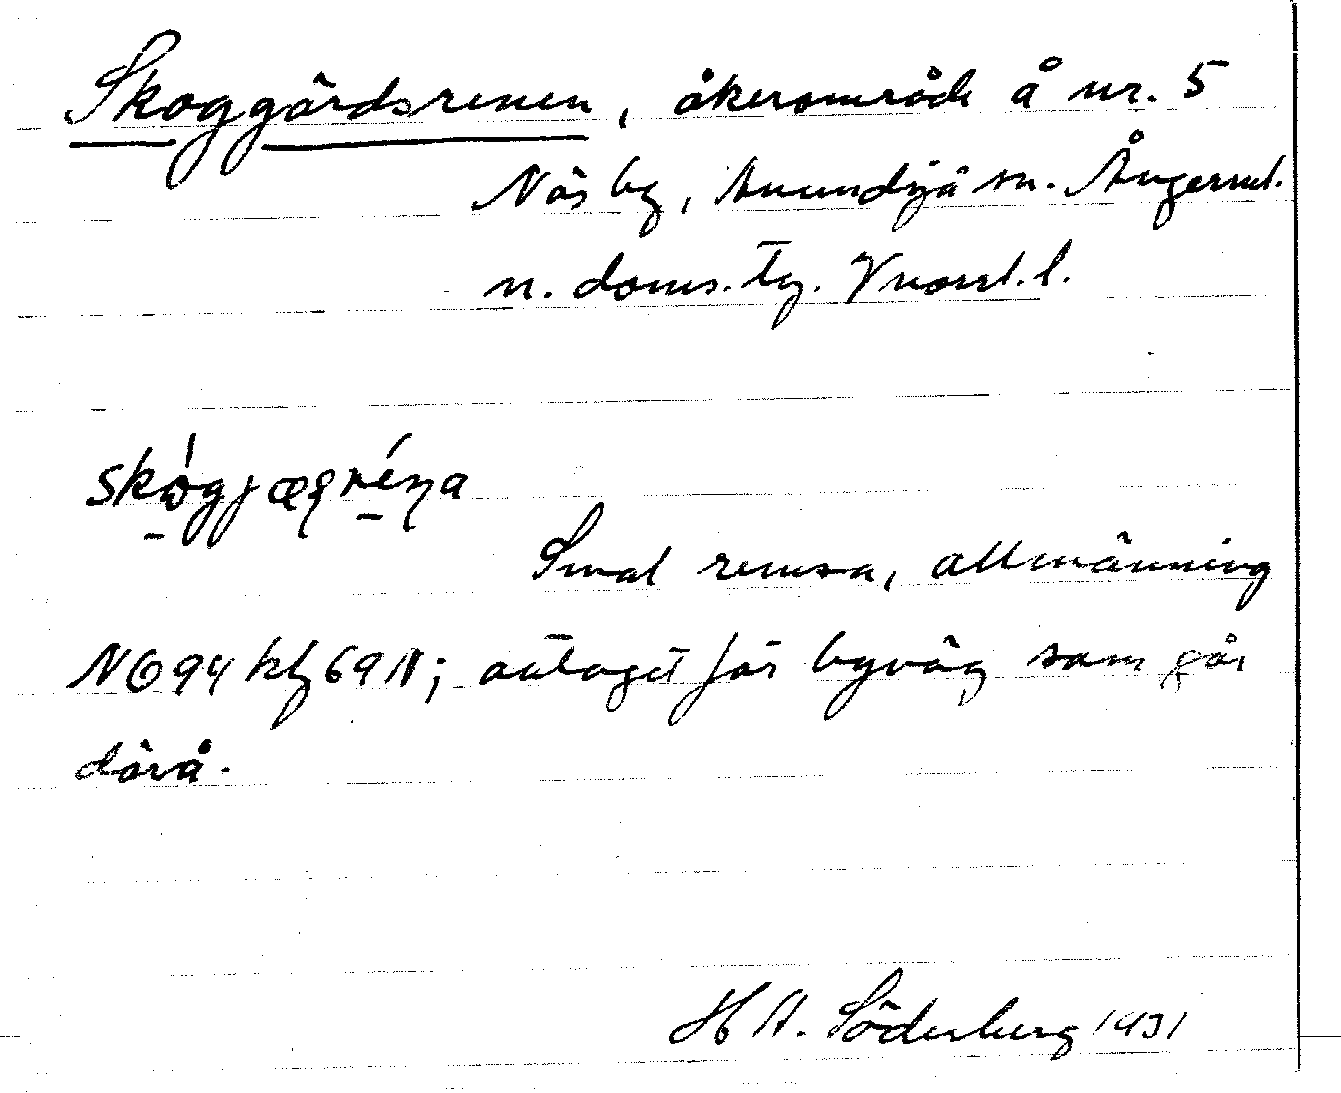 Skoggårdsrenen, åkerområde å nr. 5
Näs by, Anundsjö sn. Ångerml.
n. doms. tg. Vnorrl. l.
Smal remsa, allmänning
NO 94 kfg 69 N; avtaget för byväg som går
därå.
H A. Söderberg 1931